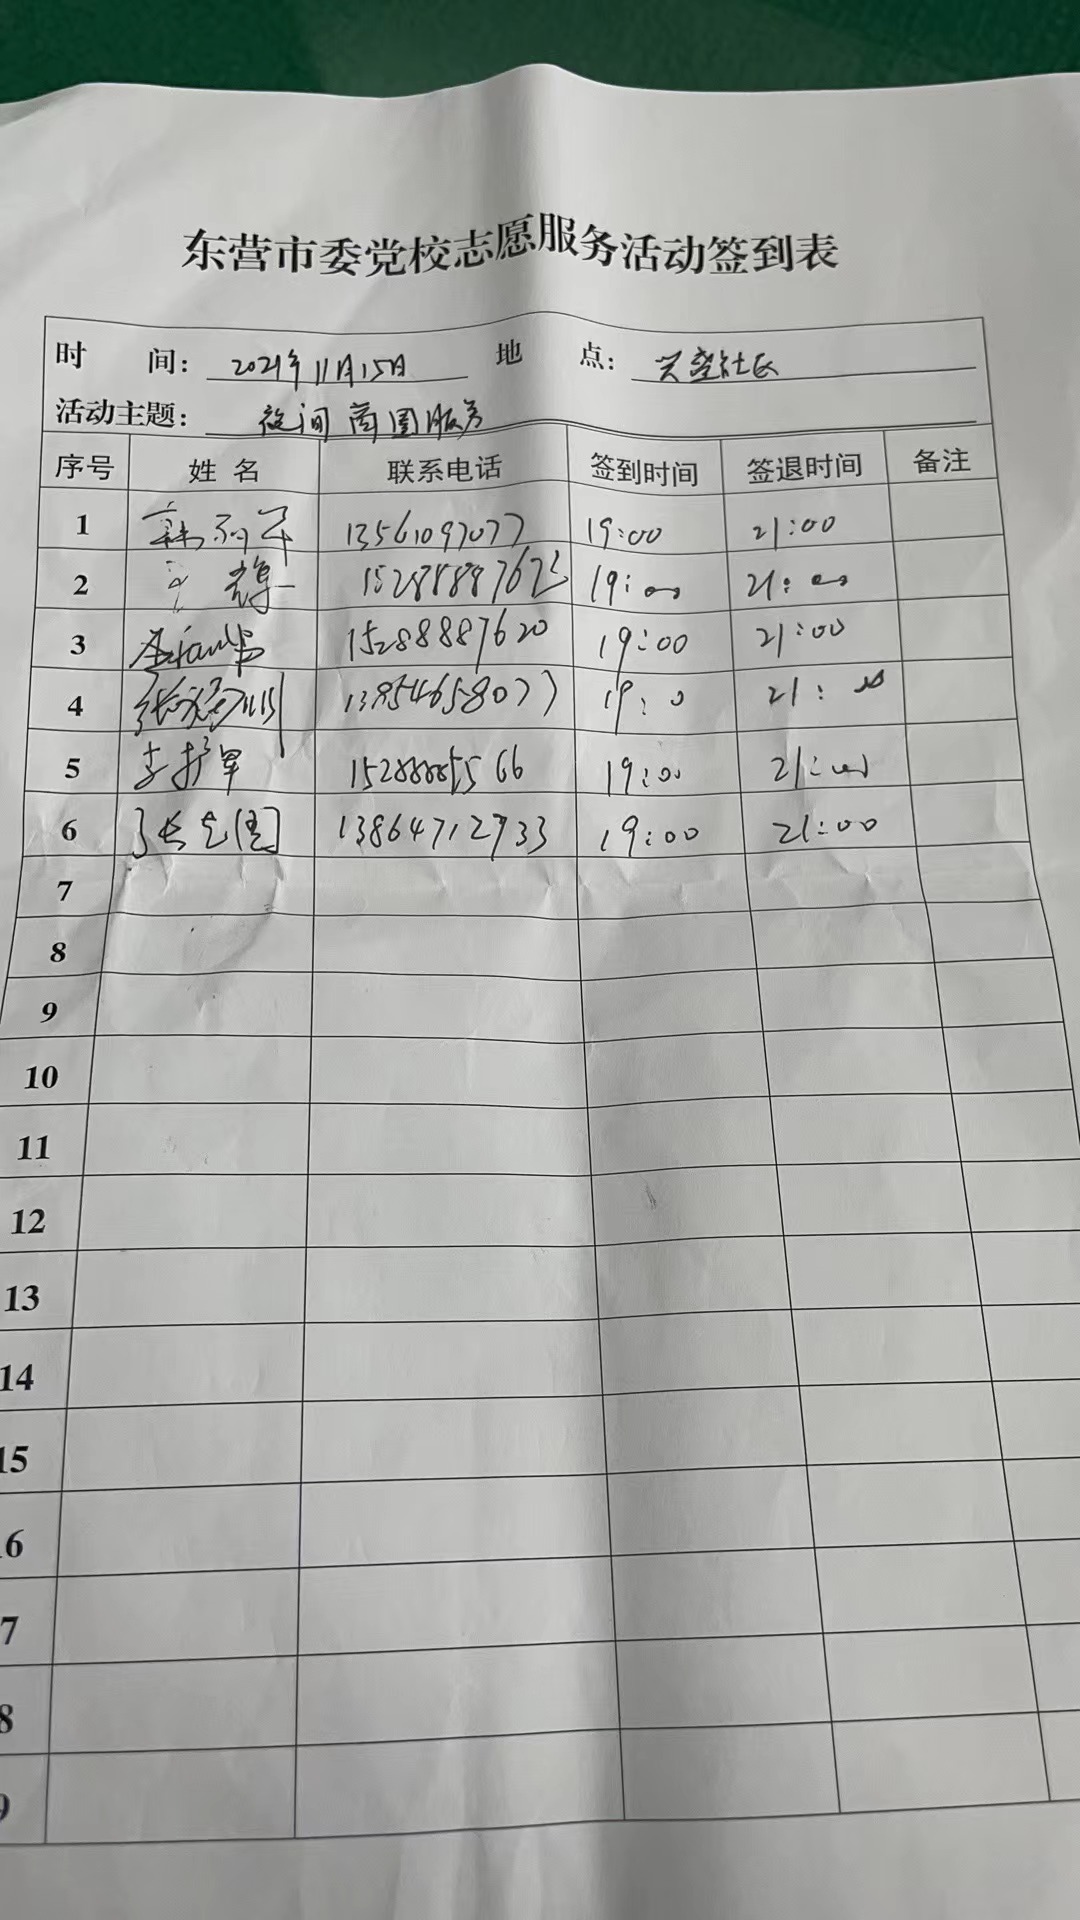 东营市委党校志愿服务活动签到表
时 间: 2021年11月15日 地 点: 社区
活动主题: 夜间商圈服务
序号 姓名 联系电话 签到时间 签退时间 备注
1 13561097077 19:00 21:00
2 19:00 21:00
3 15288887620 19:00 21:00
4 13854658077 19:0 21:00
5 李 军 19:00 21:00
6 张 13864712933 19:00 21:00
7
8
9
10
11
12
13
14
15
6
7
8
9